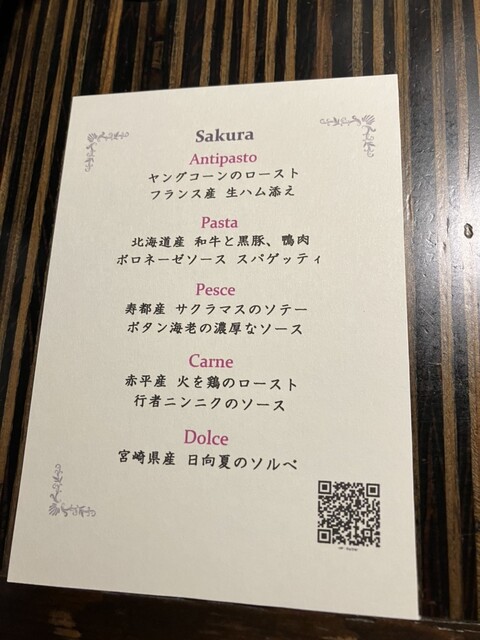 Sakura
Antipasto
ヤングコーンのロースト
フランス産 生ハム添え
Pasta
北海道産 和牛と黒豚、鴨肉
ボロネーゼソース スパゲッティ
Pesce
寿都産 サクラマスのソテー
ボタン海老の濃厚なソース
Carne
赤平産 火を鶏のロースト
行者ニンニクのソース
Dolce
宮崎県産 日向夏のソルベ